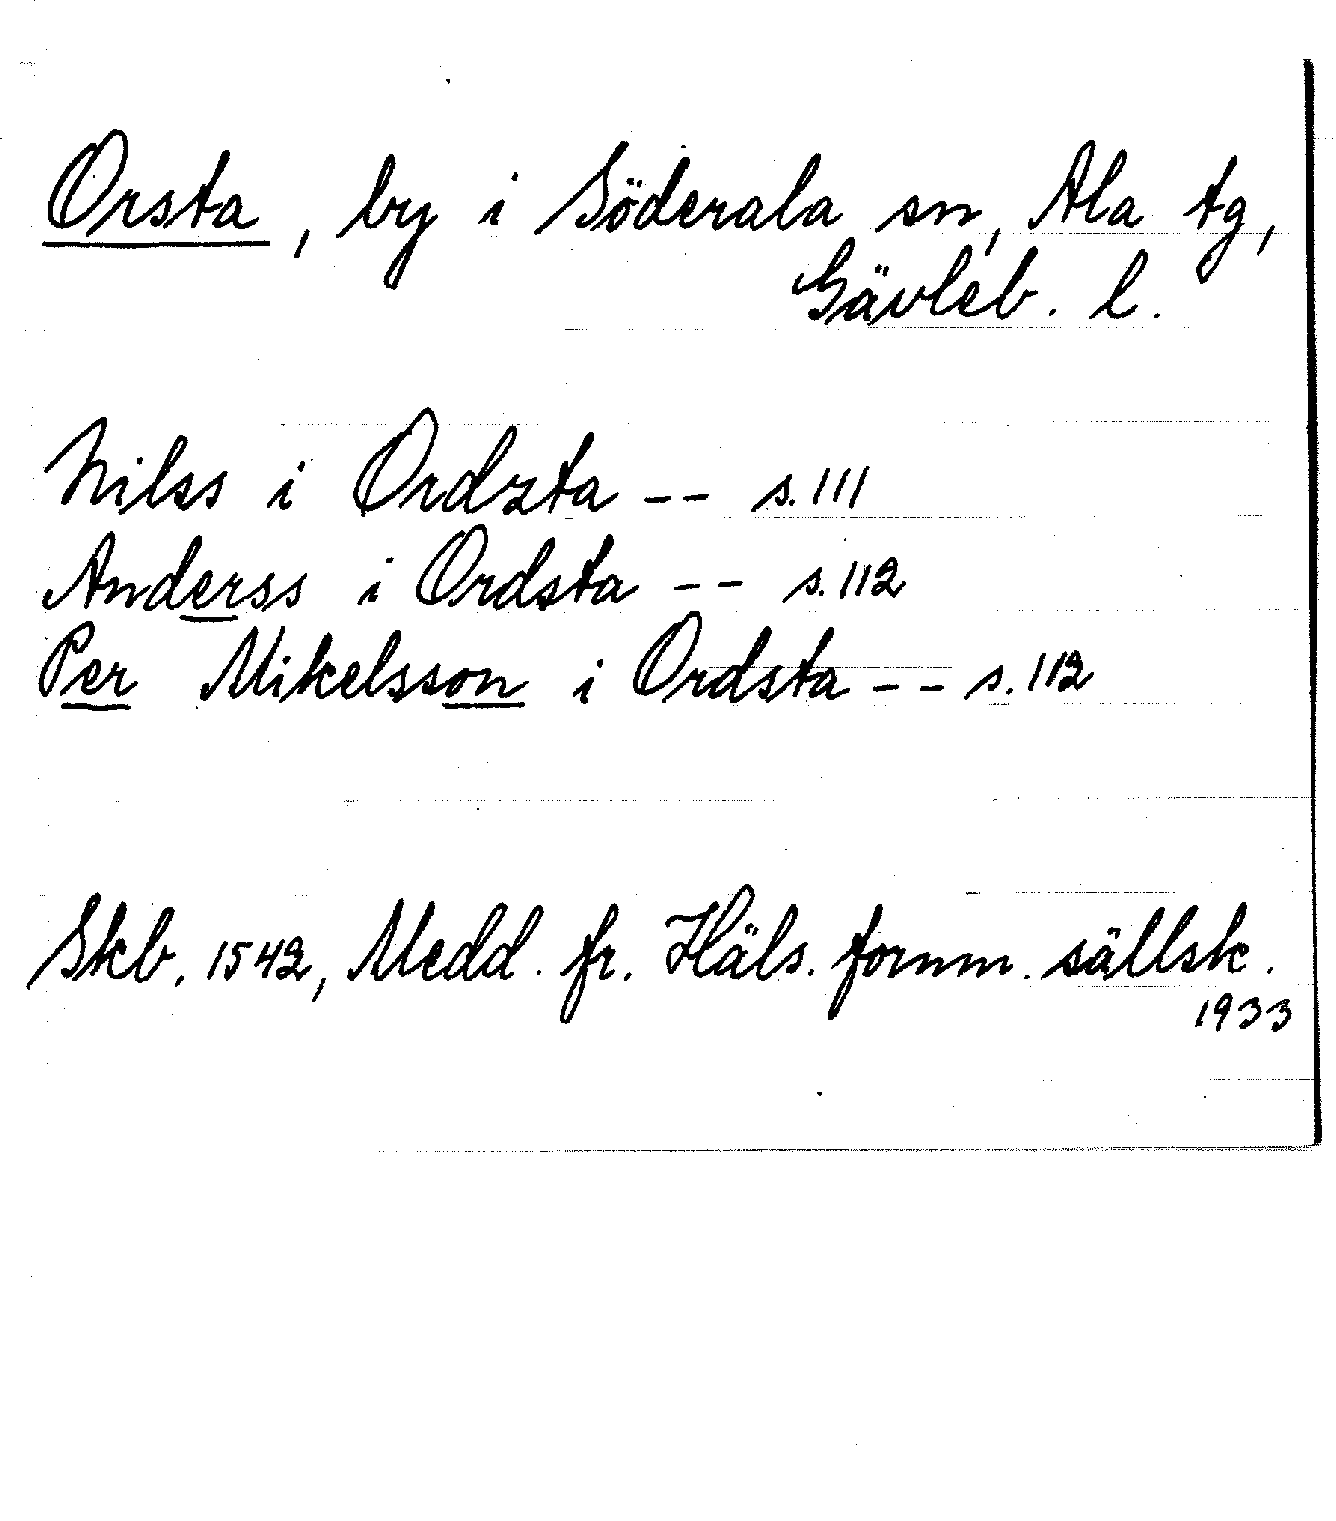 Orsta, by i Söderala sn, Ala tg,
Gävleb. l.
Nilss i Ordzta -- s. 111
Anderss i Ordsta -- s. 112
Per Mikelsson i Ordsta -- s. 112
Skb. 1542, Medd. fr. Häls. fornm. sällsk.
1933